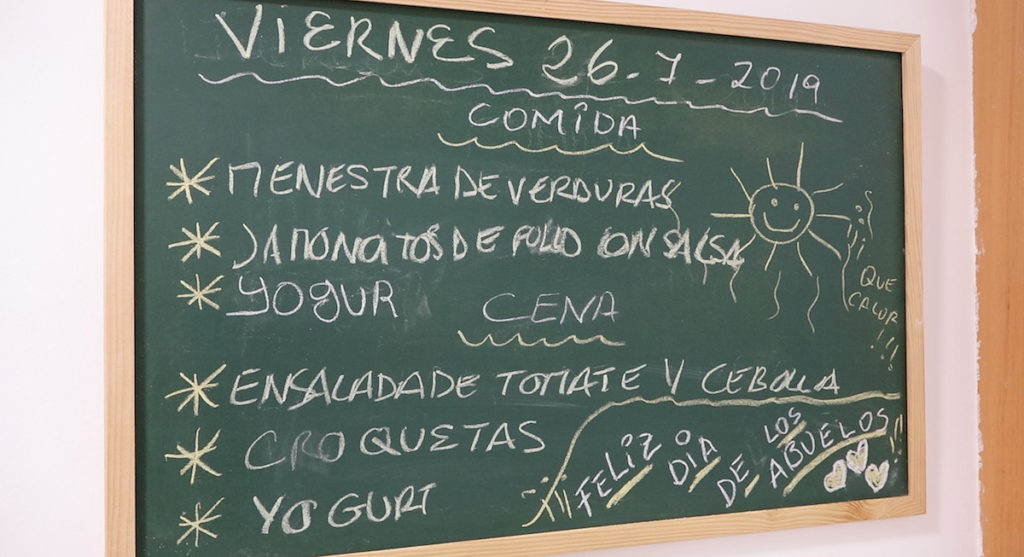 VIERNES 26-7-2019
COMIDA
* MENESTRA DE VERDURAS
* JAMONCITOS DE POLLO CON SALSA
* YOGUR
CENA
* ENSALADA DE TOMATE Y CEBOLLA
* CROQUETAS
* YOGURT
¡¡ QUE
CALOR
!!!
¡¡¡ FELIZ DIA DE LOS ABUELOS !!!